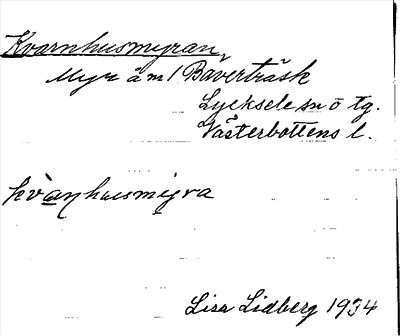 Kvarnhusmyran
Myr äm 1 Bäverträsk
Lycksele sn o tg.
Västerbottens l.
kvàṇhusmyra
Lisa Lidberg 1934